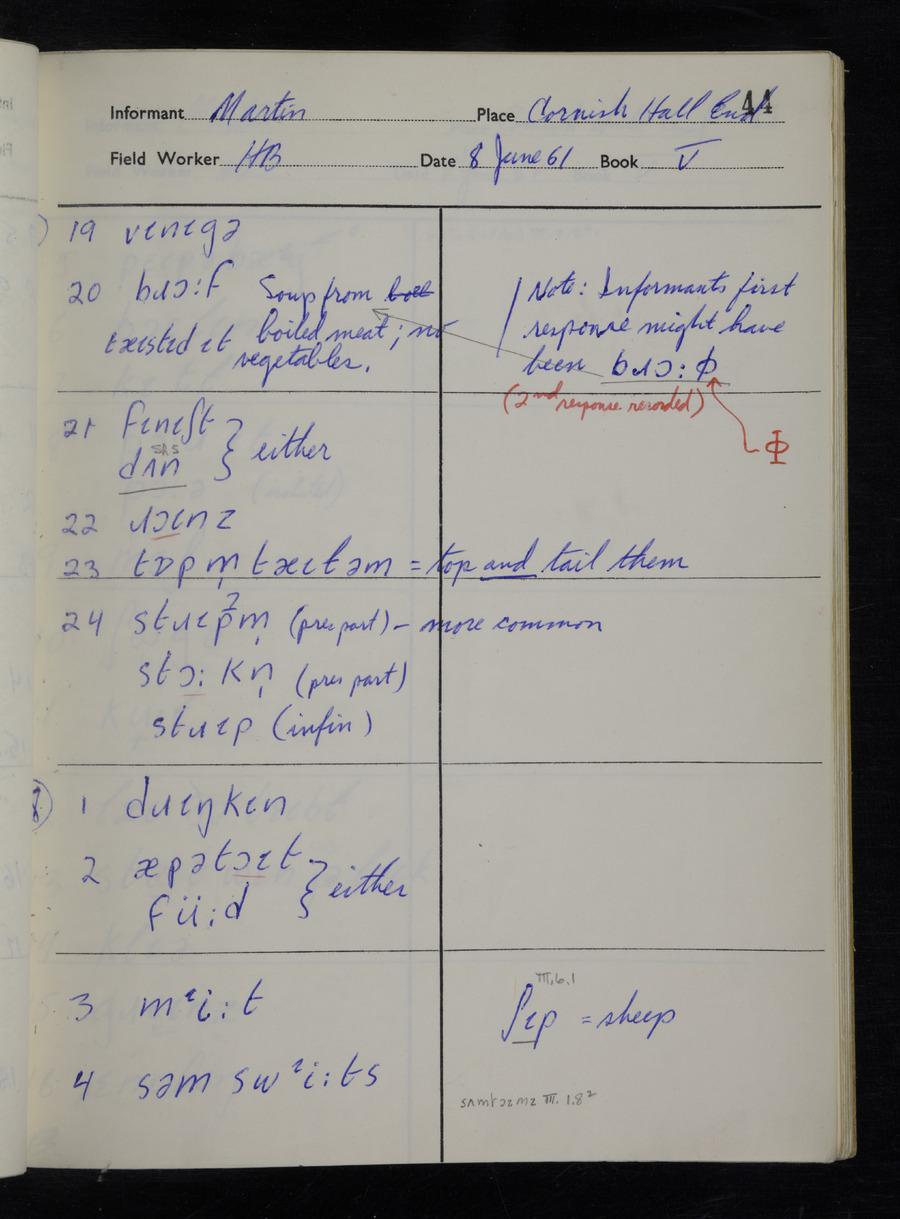 44
Informant Martin Place Cornish Hall End
Field Worker HB Date 8 June 61 Book V
19 vɪnɪgə
20 bɹɔ:f Soup from
boiled meat; no
vegetables.
tæɪstɪd ɪt
Note: Informants first
response might have
been bɹɔ:ɸ
(2nd response recorded)
Φ
21 fɪnɪʃt
dʌn } either
SRS
22 ɹɔɪnz
23 tɒpm̩ tæɪləm = top and tail them
24 stɹɪpʔm̩ (pres part) – more common
stɔ:kn̩ (pres part)
stɹɪp (infin)
8)
1 dɹɪŋkɪn
2 æpətɔɪt
fü:d } either
3 mᶦi:t
III.6.1
ʃɪp = sheep
4 səm swᶦi:ts
sʌmtɔɪmz III. 1.8²